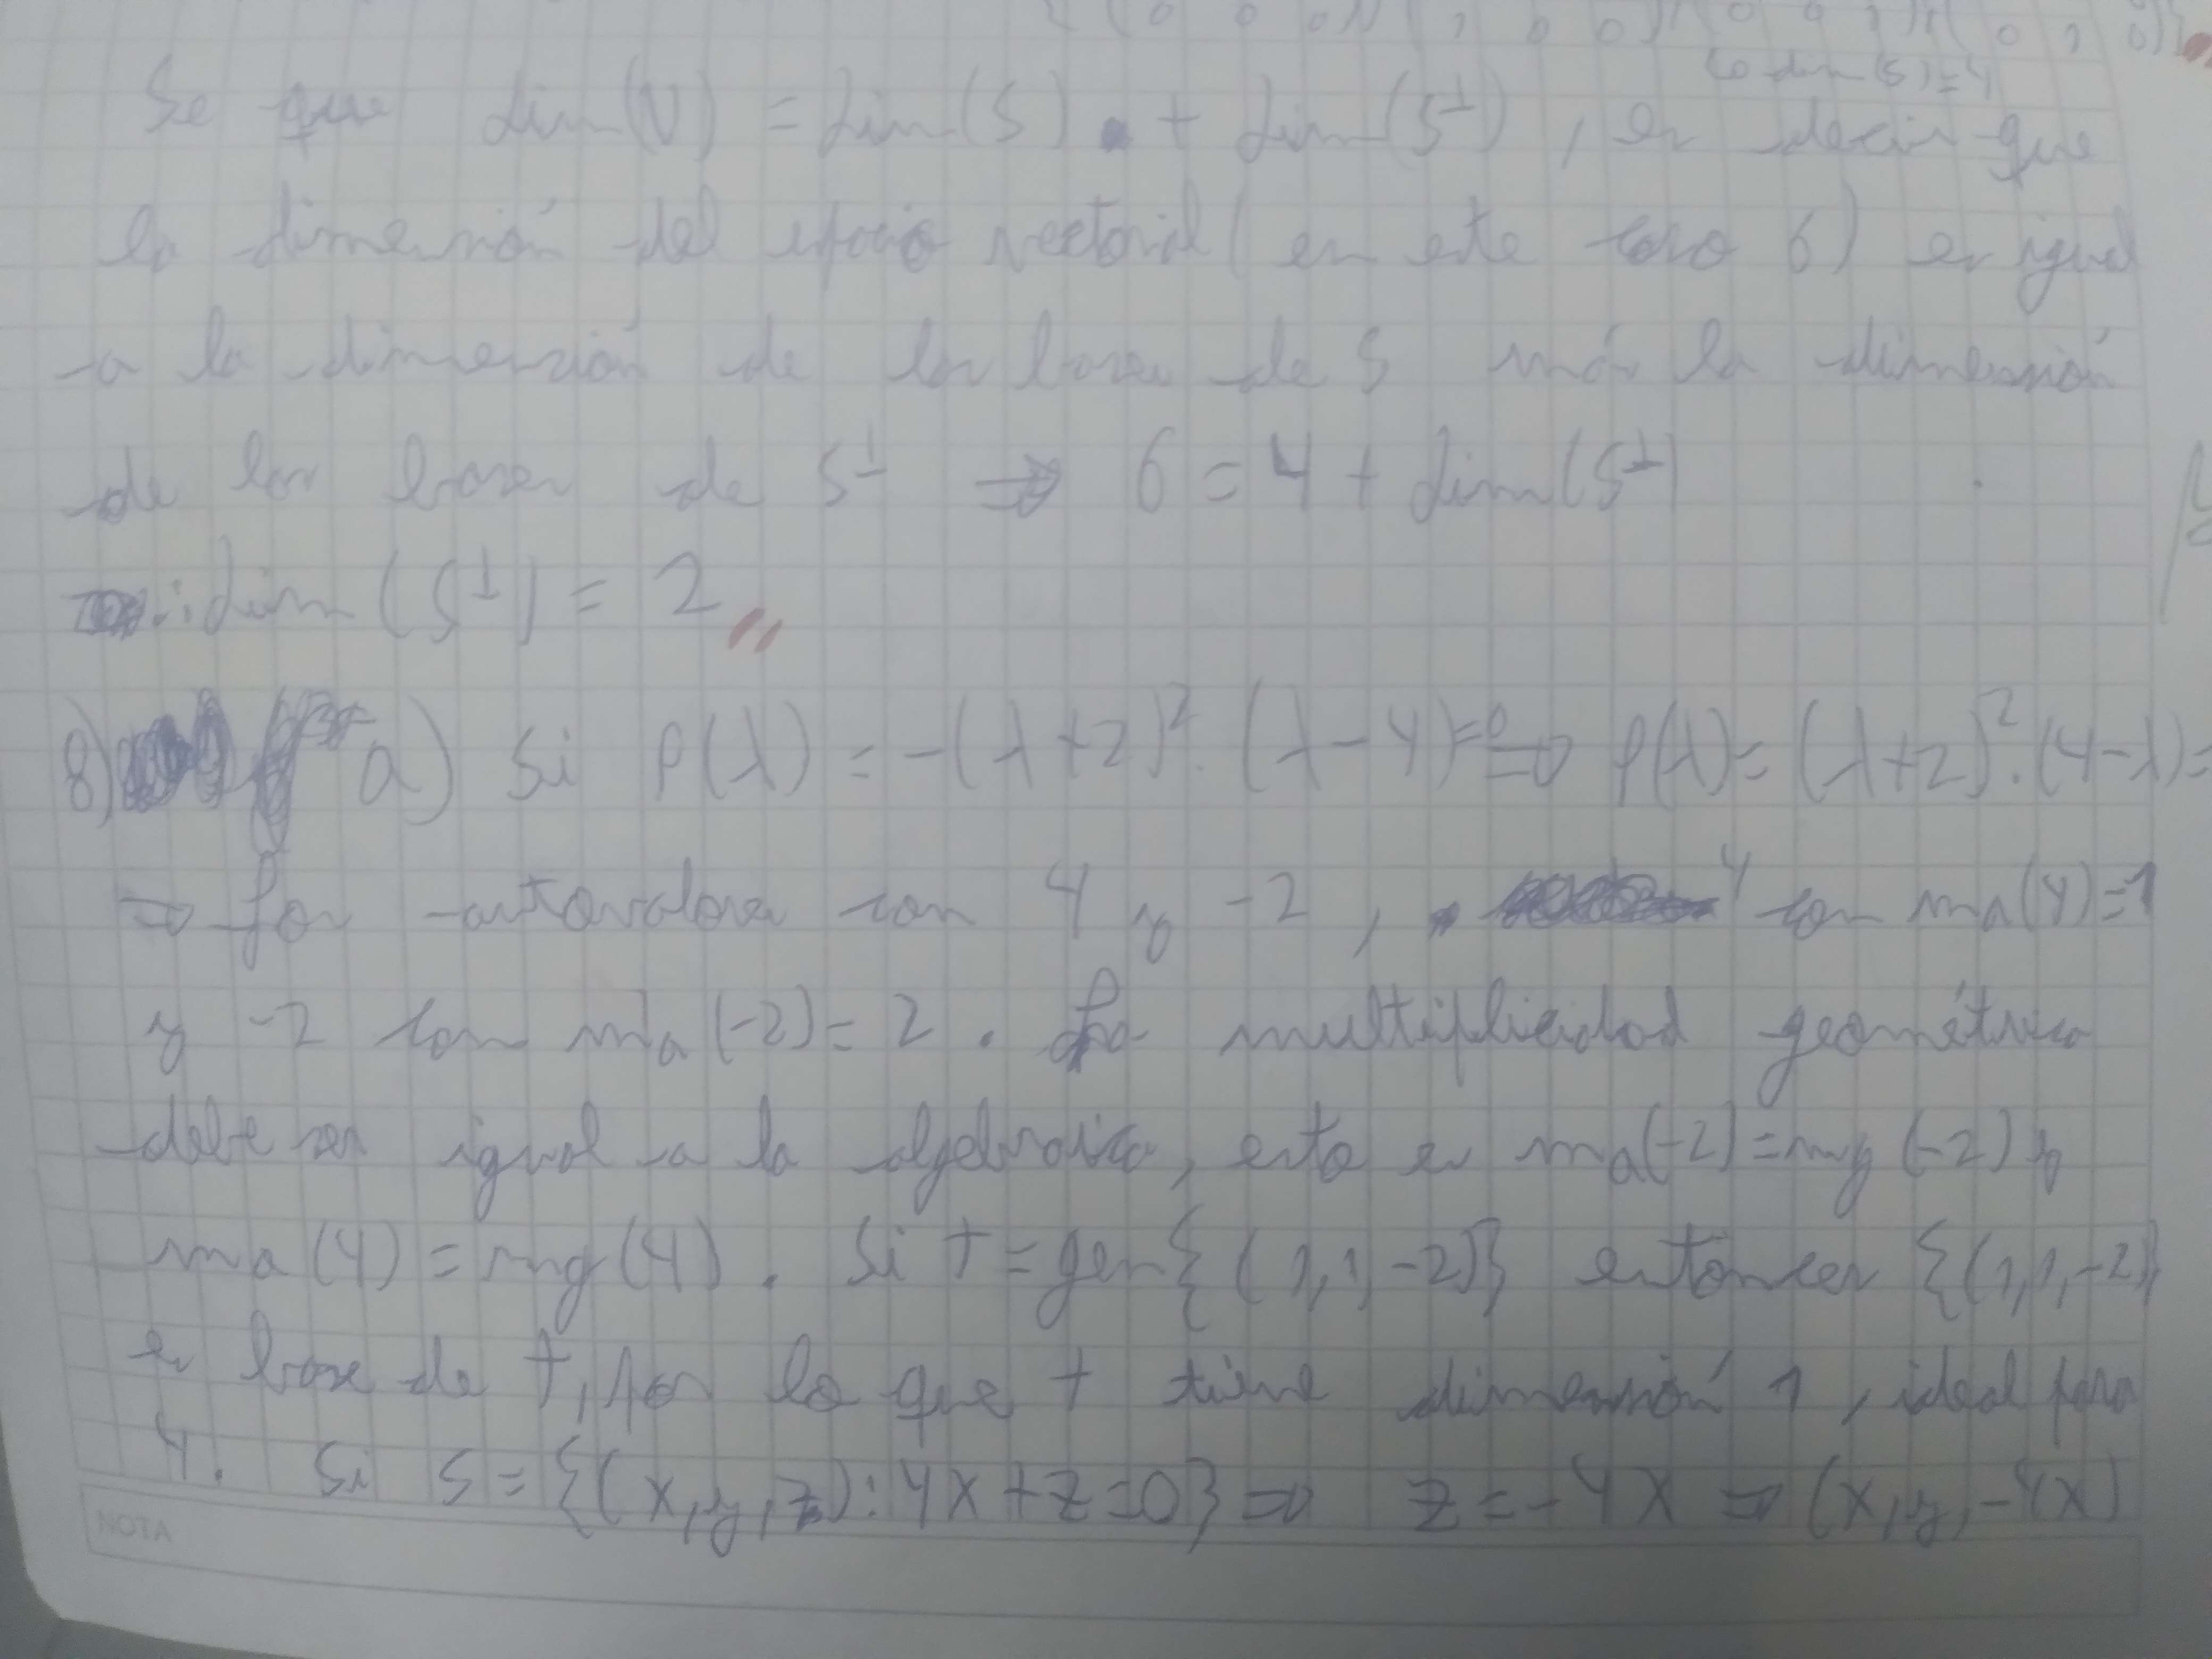 ( 0 0 0 ) ( 1 0 0 ) ( 0 0 1 ) ( 0 1 0 ) }
dim(S)=4
Se que dim(V) = dim(S) + dim(S⊥), es decir que
la dimensión del espacio vectorial (en este caso 6) es igual
a la dimensión de las bases de S más la dimensión
de las bases de S⊥ ⇒ 6 = 4 + dim(S⊥)
∴ dim(S⊥) = 2
8) a) Si P(λ) = -(λ+2)². (λ-4)=0 ⇒ P(λ) = (λ+2)².(4-λ)=
⇒ los autovalores son 4 y -2, 4 con ma(4)=1
y -2 con ma(-2)=2. La multiplicidad geométrica
debe ser igual a la algebraica, esto es ma(-2)=mg(-2) y
ma(4)=mg(4). Si T=gen{(1,1,-2)} entonces {(1,1,-2)}
es base de T, por lo que T tiene dimensión 1, ideal para
4. Si S={(x,y,z):4x+z=0} ⇒ z=-4x ⇒ (x,y,-4x)
NOTA